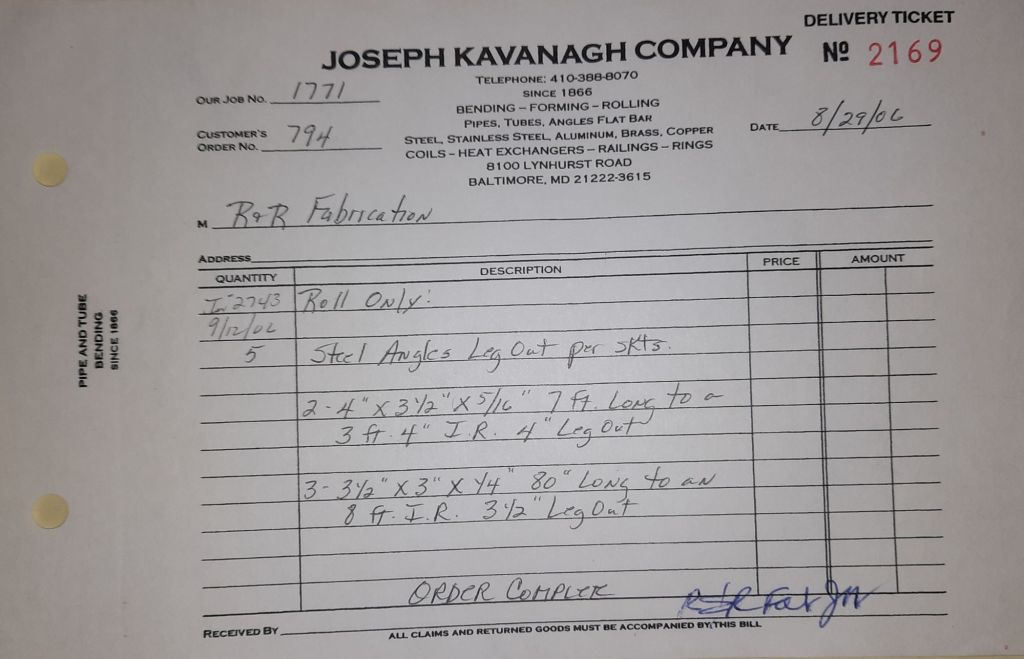 DELIVERY TICKET
JOSEPH KAVANAGH COMPANY
Nº 2169
TELEPHONE: 410-388-8070
SINCE 1866
BENDING – FORMING – ROLLING
PIPES, TUBES, ANGLES FLAT BAR
STEEL, STAINLESS STEEL, ALUMINUM, BRASS, COPPER
COILS – HEAT EXCHANGERS – RAILINGS – RINGS
8100 LYNHURST ROAD
BALTIMORE, MD 21222-3615
OUR JOB NO. 1771
CUSTOMER'S ORDER NO. 794
DATE 8/29/06
M R&R Fabrication
ADDRESS
QUANTITY DESCRIPTION PRICE AMOUNT
2743 Roll Only:
9/12/06
5 Steel Angles Leg Out per skts.
2-4" X 3 1/2" X 5/16" 7 ft. Long to a
3 ft. 4" I.R. 4" Leg Out
3- 3 1/2" X 3" X 1/4" 80" Long to an
8 ft. I.R. 3 1/2" Leg Out
ORDER COMPLETE
RECEIVED BY
ALL CLAIMS AND RETURNED GOODS MUST BE ACCOMPANIED BY THIS BILL
PIPE AND TUBE
BENDING
SINCE 1866